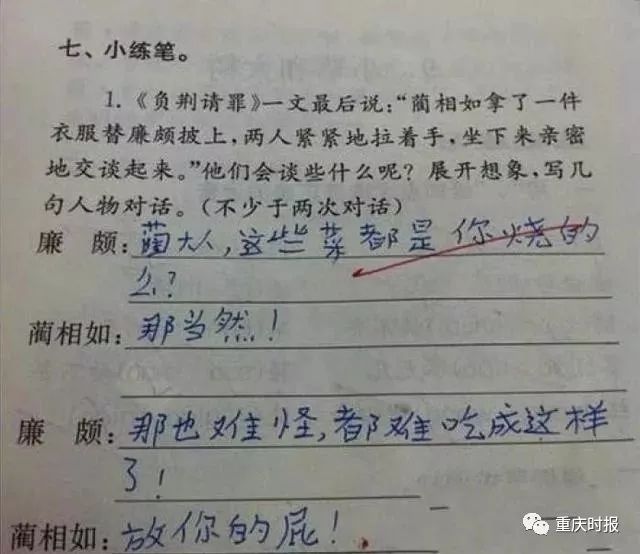 七、小练笔。
1.《负荆请罪》一文最后说:“蔺相如拿了一件
衣服替廉颇披上,两人紧紧地拉着手,坐下来亲密
地交谈起来。”他们会谈些什么呢?展开想象,写几
句人物对话。(不少于两次对话)
廉 颇:蔺大人,这些菜都是你烧的
么?
蔺相如:那当然!
廉 颇:那也难怪,都难吃成这样
了!
蔺相如:放你的屁!
重庆时报